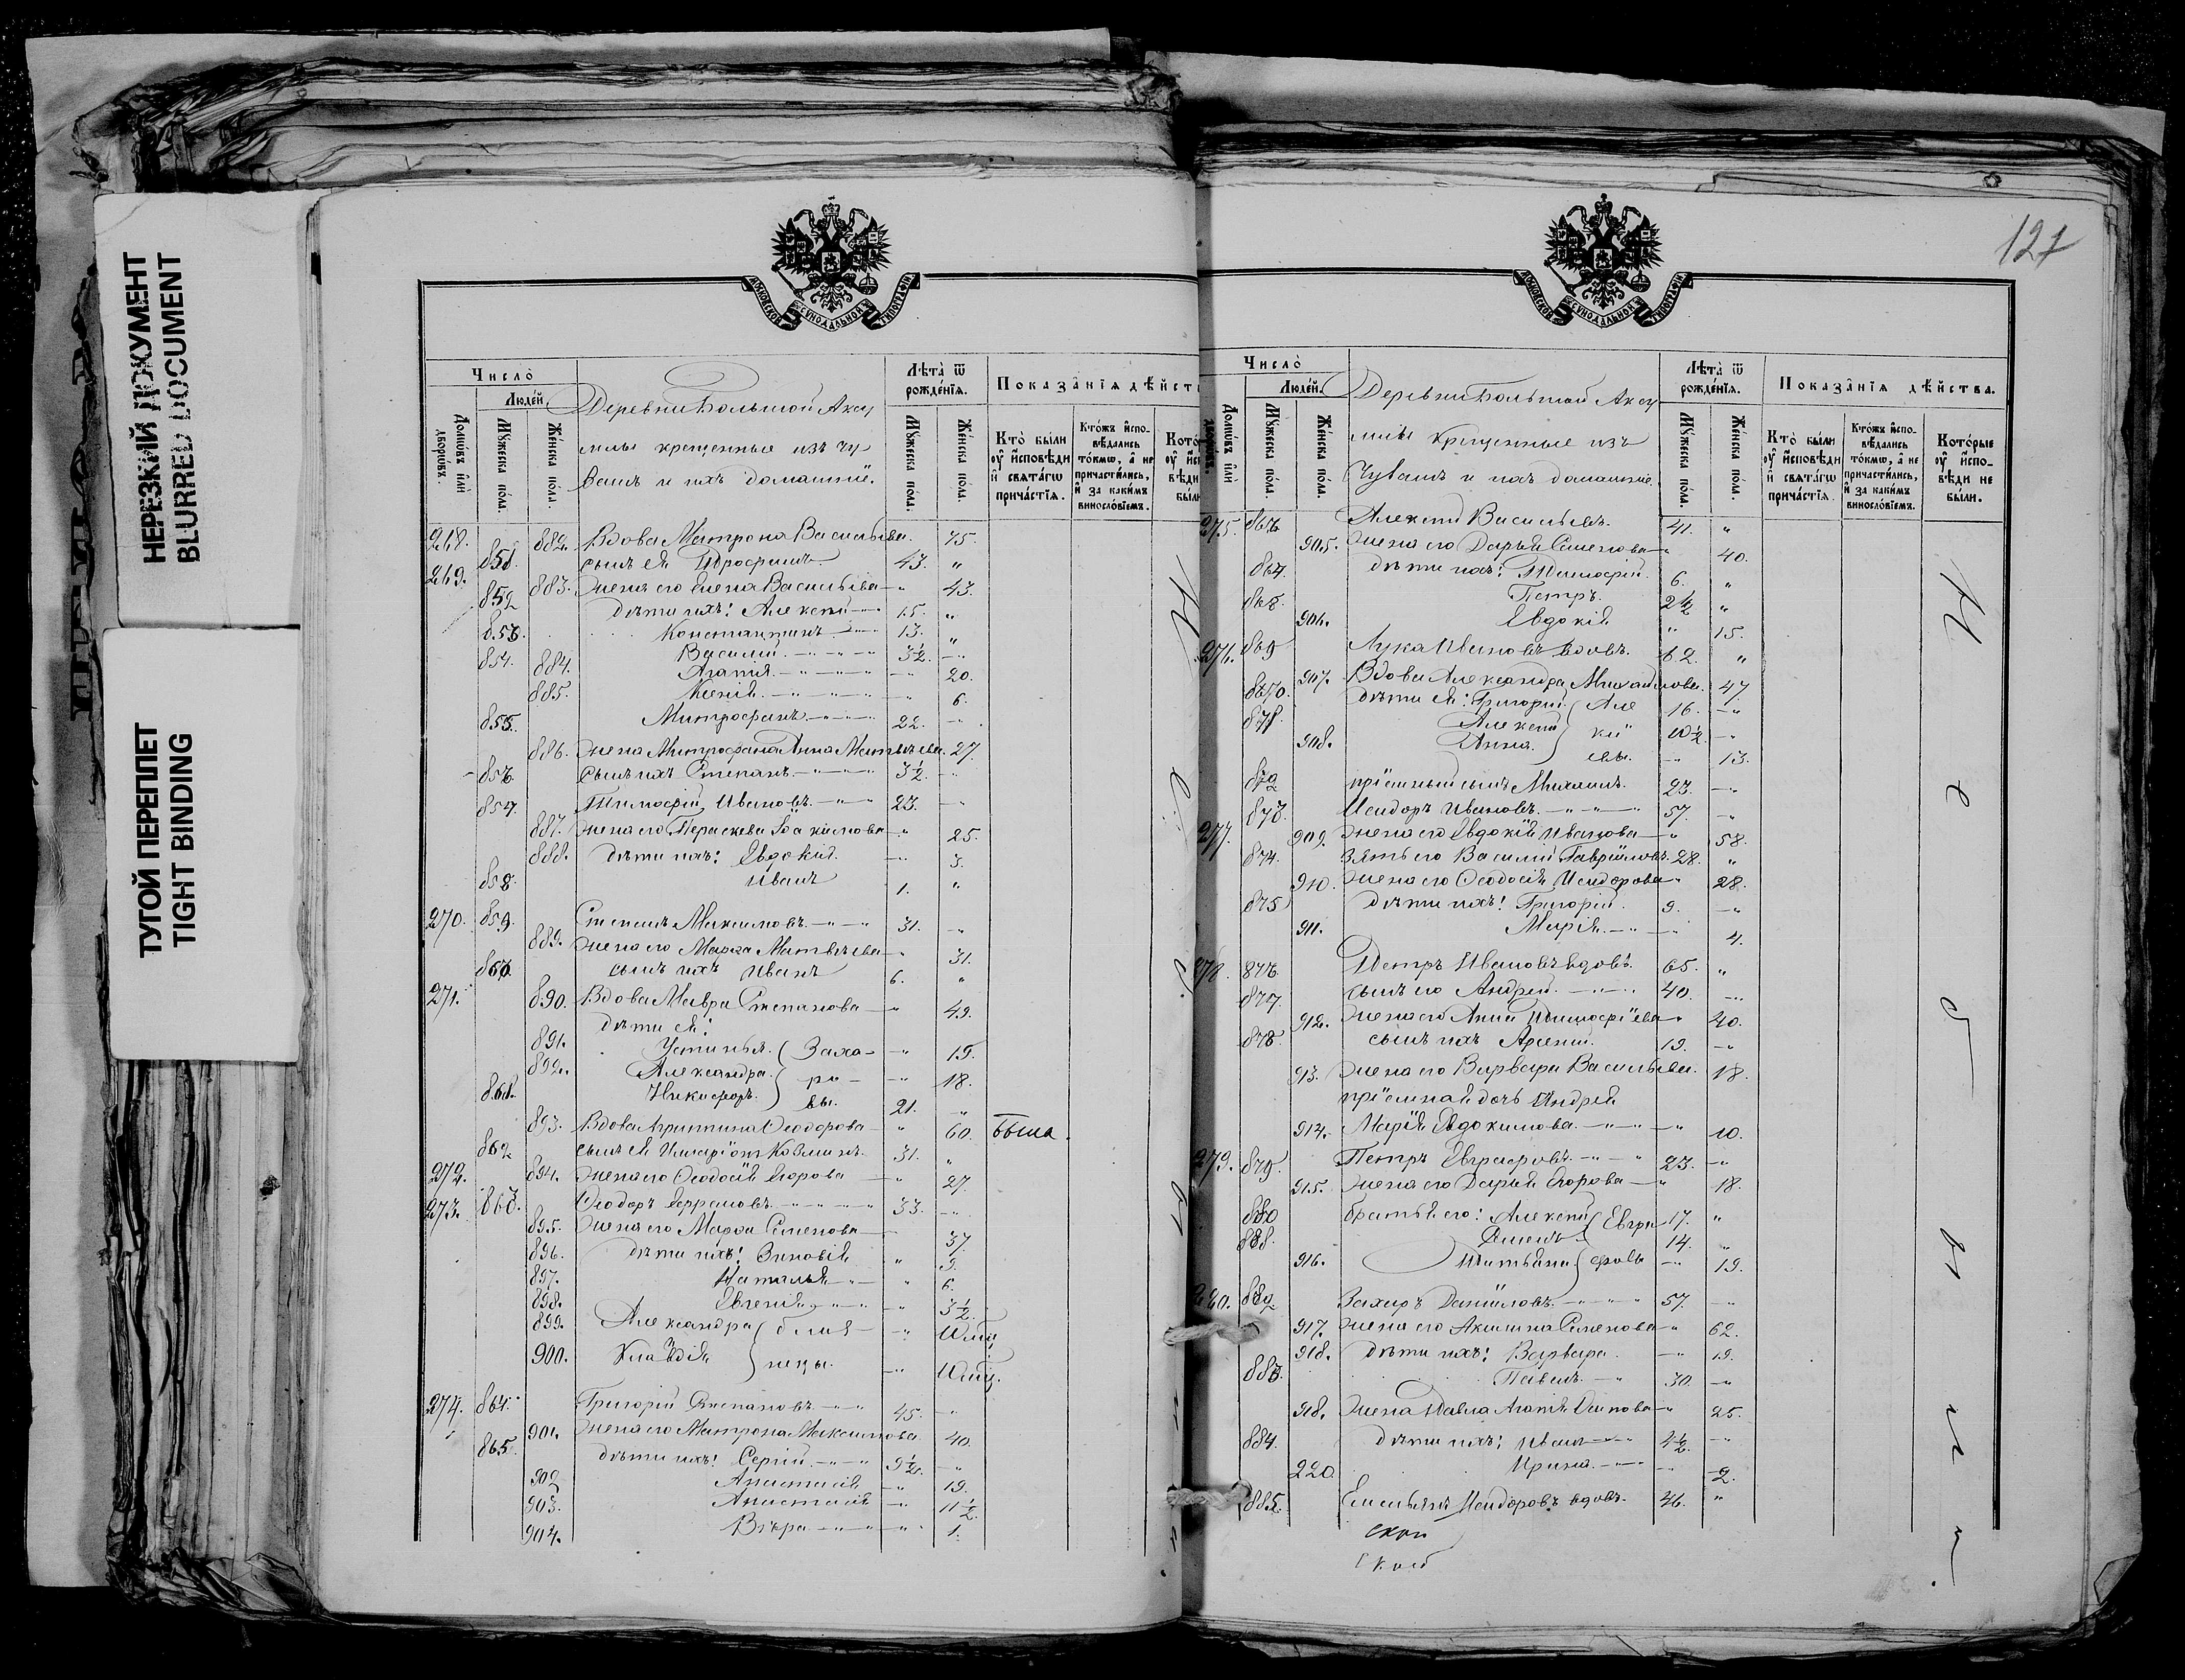 НЕРЕЗКИЙ ДОКУМЕНТ
BLURRED DOCUMENT
ТУГОЙ ПЕРЕПЛЕТ
TIGHT BINDING
МОСКОВСКОЙ СѴНОДАЛЬНОЙ ТИПОГРАФІИ
Число̀
Людéй
Домѡ́въ и҆лѝ дворѡ́въ.
Мꙋ́жеска по́ла.
Же́нска по́ла.
Деревни Большой Аксу
млы крещенные изъ Чу
вашъ и ихъ домашніе.
Лѣта̀ ѿ рожде́нїѧ.
Мꙋ́жеска по́ла.
Же́нска по́ла.
Показа̑нїѧ дѣ́йст
Кто̀ бы́ли оу҆ и҆сповѣ́ди и҆ свѧта́гѡ прича́стїѧ.
Кто́жъ и҆спо-вѣ́дались то́кмѡ, а҆ не причасти́лись, и҆ за каки́мъ винослові́емъ.
268. 882. Вдова Матрона Васильева. 75.
851. сынъ ея 43. "
269. 883. Жена его Елена Васильева " 43.
852 дѣти ихъ: Алексѣй 15. "
853. Константинъ 13. "
854. Василій 3½.
884. Агапія 20.
885. Ксенія " 6.
855. Митрофанъ 22.
886. Жена Митрофана Анна Матвѣева 27.
856 сынъ ихъ Степанъ 3½.
857 Тимофей Ивановъ 23.
887. жена его Параскева " 25.
888. дѣти ихъ: Евдокія 3.
858. Иванъ 1. "
270. 859. Степанъ Максимовъ 31.
889. жена его Марѳа Матвѣева 31.
860 сынъ ихъ Иванъ 6. "
271. 890. Вдова Мавра Степанова " 49.
дѣти ея:
891. Устинья Заха- " 15.
892. Александра ро- " 18.
861. Никифоръ вы. 21. "
893. Вдова Агрипина Ѳеодорова " 60. была.
862 сынъ ея 31. "
272. 894. жена его Ѳеодосія Егорова " 27.
273. 863. Ѳеодоръ 33.
895. жена его Марѳа Семенова 37.
896. дѣти ихъ: Зиновія " 9.
897. Наталья " 6.
898. Евгенія " 3½.
899. Александра близ- "
900. Клавдія нецы. "
274. 864. Григорій Степановъ 45.
901. жена его Матрона Максимова 40.
865. дѣти ихъ: Сергій 9½.
902 Анастасія 19.
903. Анастасія 11½
904. Вѣра 1.
127
МОСКОВСКОЙ СѴНОДАЛЬНОЙ ТИПОГРАФІИ
Число̀
Людéй.
Мꙋ́жеска по́ла.
Же́нска по́ла.
Деревни Большой Аксу
млы крещенные изъ
Чувашъ и ихъ домашніе.
Лѣта̀ ѿ рожде́нїѧ.
Мꙋ́жеска по́ла.
Же́нска по́ла.
Показа̑нїѧ дѣ́йства.
Кто̀ бы́ли оу҆ и҆сповѣ́ди и҆ свѧта́гѡ прича́стїѧ.
Кто́жъ и҆спо-вѣ́дались то́кмѡ, а҆ не причасти́лись, и҆ за каки́мъ винослові́емъ.
Кото́рые оу҆ и҆спо-вѣ́ди не бы́ли.
275. 866 Алексѣй Васильевъ. 41. "
905. жена его Дарья Семенова 40.
867. дѣти ихъ: Тимофей 6. "
868. Петръ. 2½ "
906. Евдокія " 15.
276. 869 Лука Ивановъ вдовъ. 62. "
907. Вдова Александра Михайлова. 47
870. дѣти ея: Григорій Але 16.
871. Алексѣй ксѣ 10½
908. Анна. евы. 13.
872 пріемный сынъ Михаилъ. 23.
873. Исидоръ Ивановъ. 57.
277. 909. жена его Евдокія Иванова " 58.
874. зять его Василій Гавриловъ. 28. "
910. жена его Ѳеодосія Исидорова " 28.
875 дѣти ихъ: Григорій 9.
911. Марія 4.
278. 876. Петръ Ивановъ вдовъ. 65. "
877. сынъ его Андрей. 40.
912. жена его Анна Тимофѣева " 40.
878. сынъ ихъ Арсеній. 19.
913. жена его Варвара Васильева. 18.
пріемная дочь Андрея
914. Марія Евдокимова. 10.
279. 879. Петръ Евграфовъ. 23.
915. жена его Дарья Егорова " 18.
880 братья его: Алексѣй Евгра- 17. "
881. Семенъ 14. "
916. Татьяна фовы 19.
280. 882 Захаръ Даниловъ. 57.
917. жена его Акилина Семенова " 62.
918. дѣти ихъ: Варвара 19.
883. Павелъ 30.
918. Жена Павла Агапія Осипова " 25.
884. дѣти ихъ: Иванъ 4½
220. Ирина 2.
885. Емельянъ Исидоровъ вдовъ. 46. "
Не были